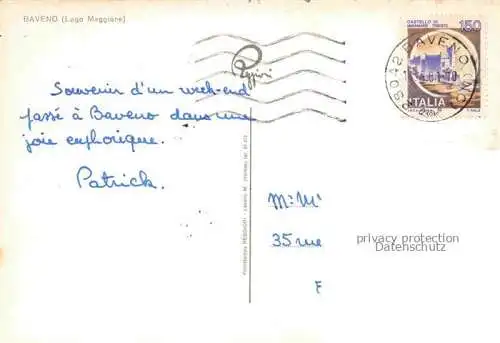 BAVENO (Lago Maggiore)
CASTELLO DI
MIRAMARE TRIESTE
150
ITALIA
28042 BAVENO (NO)
Souvenir d'un week-end
passé à Baveno dans une
joie euphorique.
Patrick.
M. Mr
35 rue
F
privacy protection
Datenschutz